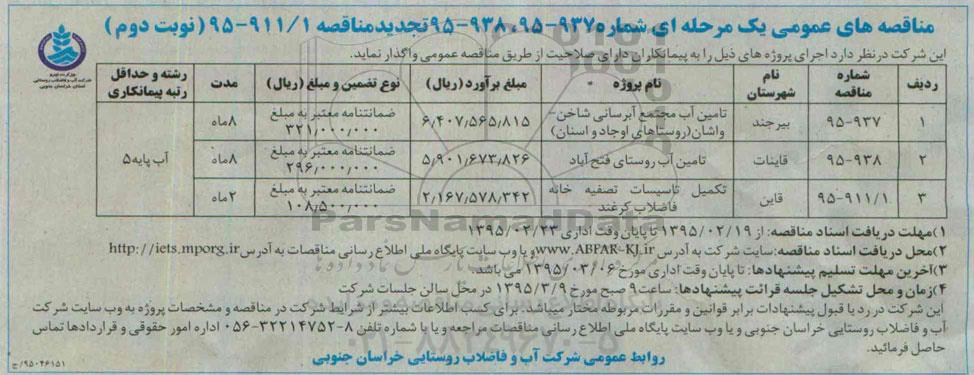 مناقصه های عمومی یک مرحله ای شماره ۹۳۷-۹۵، ۹۳۸-۹۵ تجدید مناقصه ۹۱۱/۱-۹۵ (نوبت دوم)
این شرکت در نظر دارد اجرای پروژه های ذیل را به پیمانکاران دارای صلاحیت از طریق مناقصه عمومی واگذار نماید.
شرکت آب و فاضلاب روستایی
استان خراسان جنوبی
ردیف | شماره مناقصه | نام شهرستان | نام پروژه | مبلغ برآورد (ریال) | نوع تضمین و مبلغ (ریال) | مدت | رشته و حداقل رتبه پیمانکاری
۱ | ۹۵-۹۳۷ | بیرجند | تامین آب مجتمع آبرسانی شاخن-واشان(روستاهای اوجاد و اسنان) | ۶,۴۰۷,۵۶۵,۸۱۵ | ضمانتنامه معتبر به مبلغ ۳۲۱,۰۰۰,۰۰۰ | ۸ماه | آب پایه۵
۲ | ۹۵-۹۳۸ | قاینات | تامین آب روستای فتح آباد | ۵,۹۰۱,۶۷۳,۸۲۶ | ضمانتنامه معتبر به مبلغ ۲۹۶,۰۰۰,۰۰۰ | ۸ماه
۳ | ۹۵-۹۱۱/۱ | قاین | تکمیل تاسیسات تصفیه خانه فاضلاب کرغند | ۲,۱۶۷,۵۷۸,۳۴۲ | ضمانتنامه معتبر به مبلغ ۱۰۸,۵۰۰,۰۰۰ | ۲ماه
۱)مهلت دریافت اسناد مناقصه: از ۱۳۹۵/۰۲/۱۹ تا پایان وقت اداری ۱۳۹۵/۰۲/۲۳
۲)محل دریافت اسناد مناقصه: سایت شرکت به آدرس www.ABFAR-KJ.ir و یا وب سایت پایگاه ملی اطلاع رسانی مناقصات به آدرس http://iets.mporg.ir
۳)آخرین مهلت تسلیم پیشنهادها: تا پایان وقت اداری مورخ ۱۳۹۵/۰۳/۰۶ می باشد.
۴)زمان و محل تشکیل جلسه قرائت پیشنهادها: ساعت ۹ صبح مورخ ۱۳۹۵/۳/۹ در محل سالن جلسات شرکت
این شرکت در رد یا قبول پیشنهادات برابر قوانین و مقررات مربوطه مختار میباشد. برای کسب اطلاعات بیشتر از شرایط شرکت در مناقصه و مشخصات پروژه به وب سایت شرکت
آب و فاضلاب روستایی خراسان جنوبی و یا وب سایت پایگاه ملی اطلاع رسانی مناقصات مراجعه و یا با شماره تلفن ۸-۳۲۲۱۴۷۵۲-۰۵۶ اداره امور حقوقی و قراردادها تماس
حاصل فرمائید.
روابط عمومی شرکت آب و فاضلاب روستایی خراسان جنوبی
۹۵۰۴۶۱۵۱/ج
ParsNamadData
۰۲۱-۸۸۳۴۹۶۷۰-۵